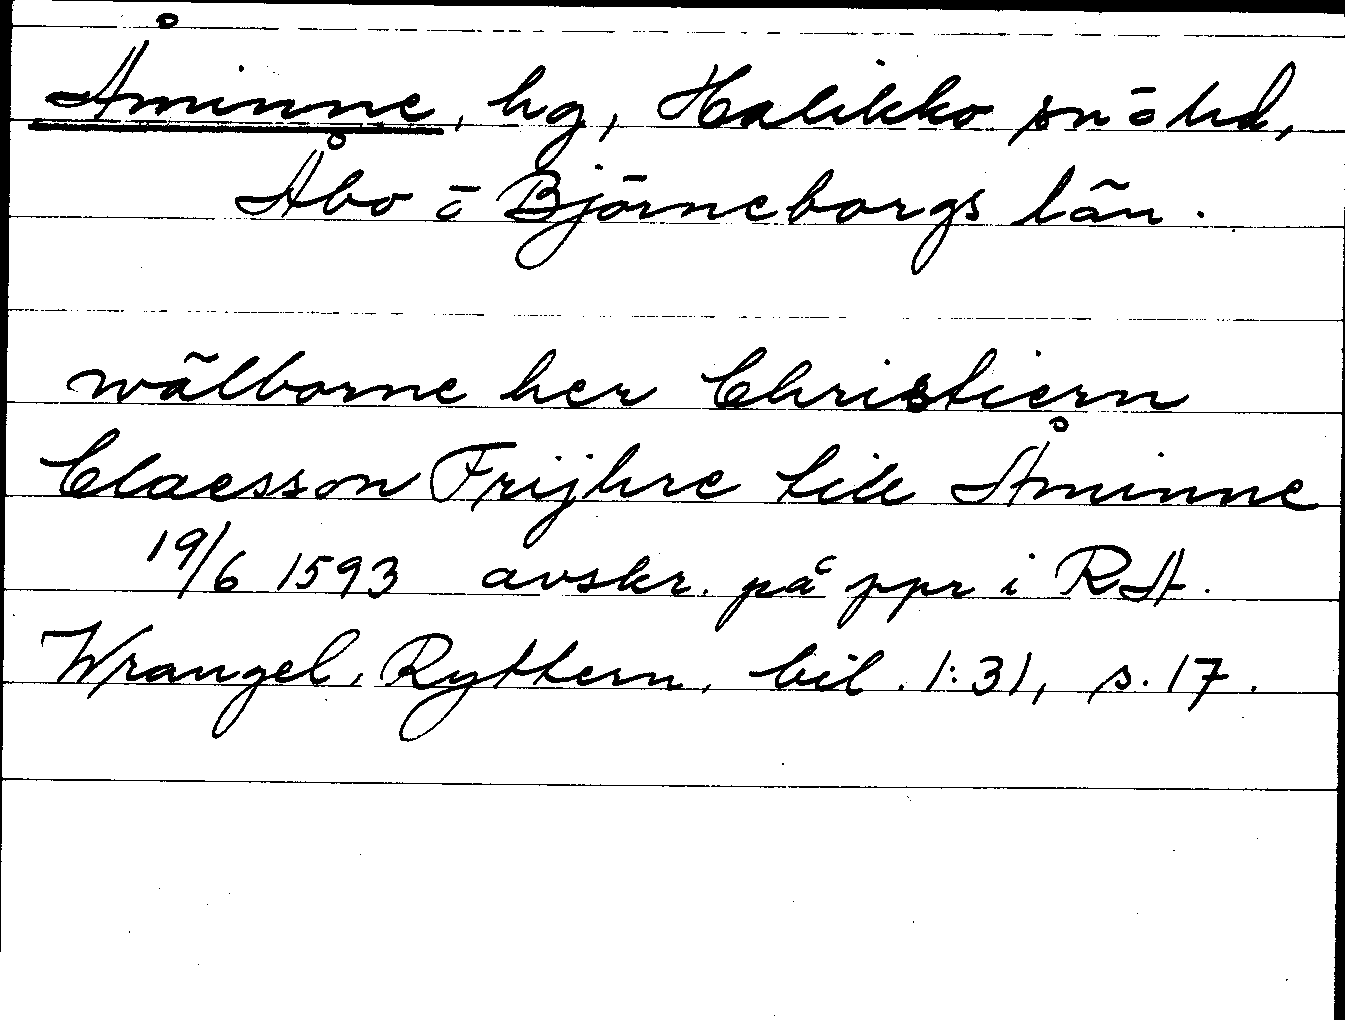 Åminne, hg, Halikko sn ō hd,
Åbo ō Björneborgs län.
wälborne her Christiern
Claesson Frijhre till Åminne
19/6 1593 avskr. på ppr i RA.
Wrangel, Ryttern, bil. 1:31, s. 17.